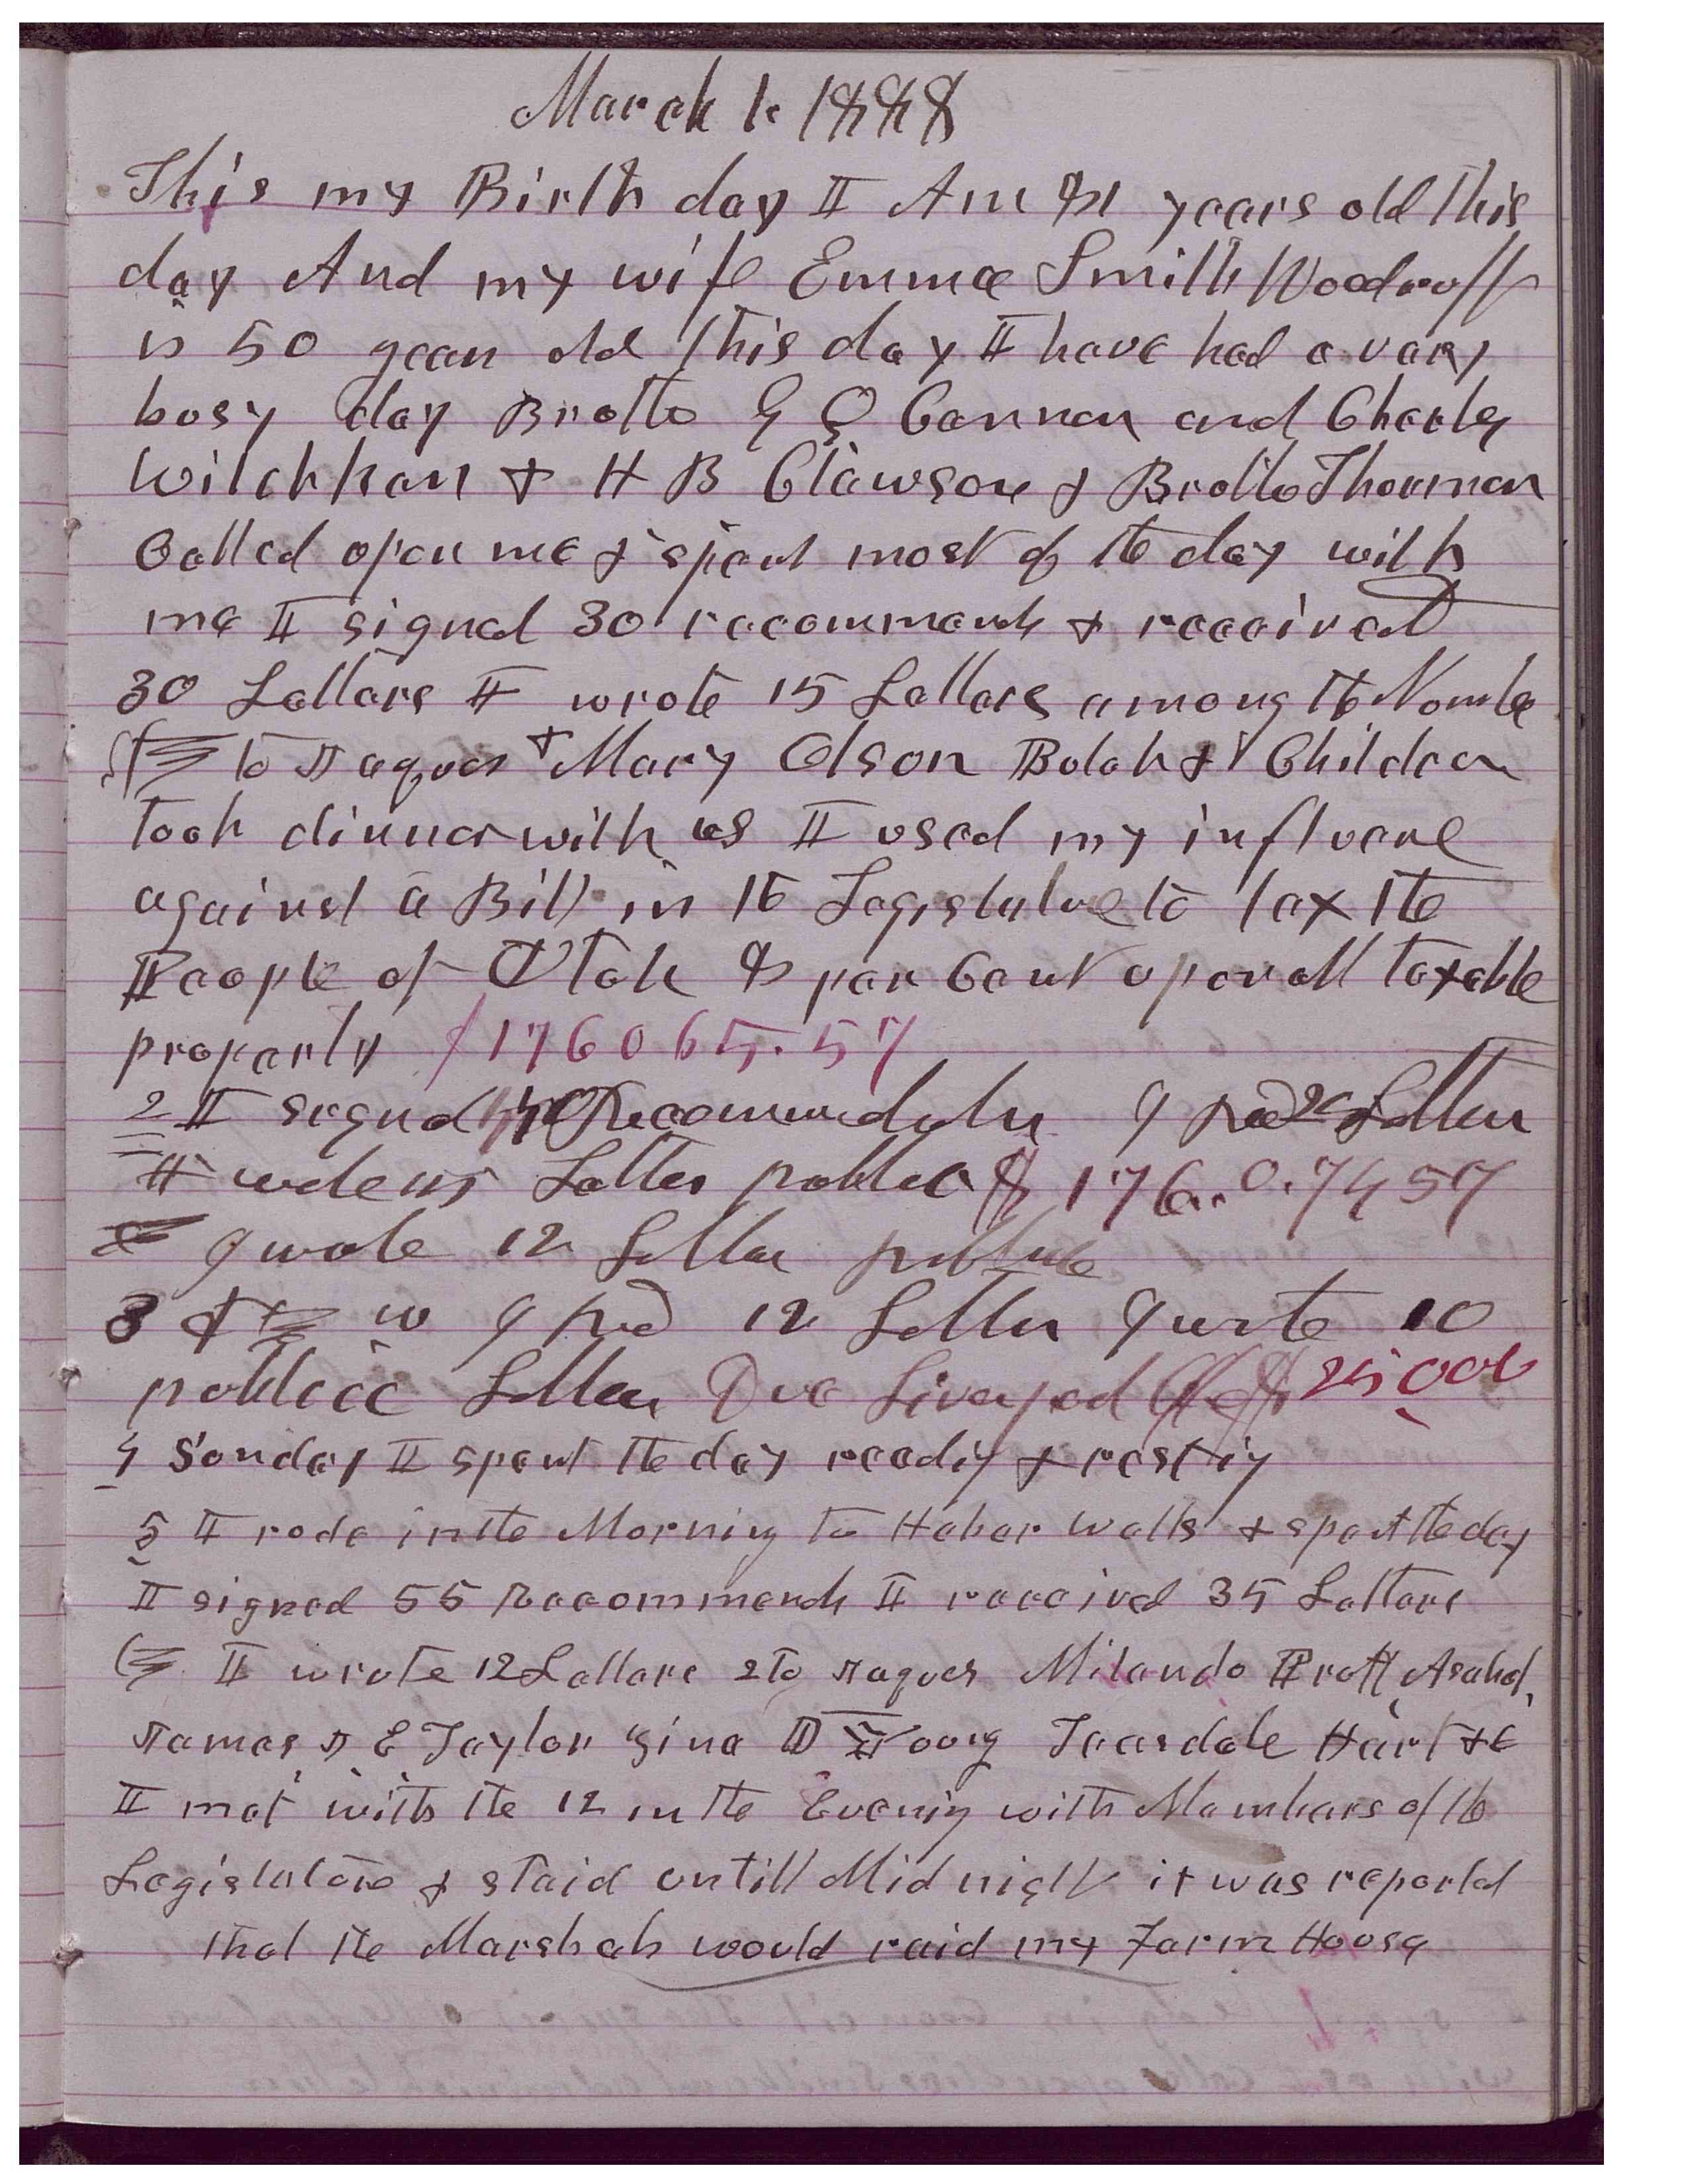 March 1. 1888
This my Birth day I Am 81 years old this
day And my wife Emma Smith Woodruff
is 50 years old this day I have had a vary
busy day Brothe G Q Cannon and Charley
Wilckken & H B Clawson & Brothe Thurman
Called upon me & spent most of the day with
me I signed 30 recommends & received
30 Letters I wrote 15 Letters among the Numbe
to Jaques & Mary Olson Bulah & Children
took dinner with us I used my influence
against a Bill in the Legislature to tax the
People of Utah 8 per Cent upon all taxable
property / 176065.57
2 I signed 40 Recommends I recd Letters
I Letters publick $ 176.0.7457
I wrote 12 Letters publick
3 I recd 12 Letters I wrote 10
publick Letters Due Liverpool Off $ 25000
4 Sunday I spent the day readig & restig
5 I rode in the Morning to Heber Wells & spent the day
I signed 55 Recommends I received 35 Letters
I wrote 12 Letters 2 to Jaques Milando Pratt, Asahel,
James J E Taylor Zina D Young Teasdale Hart &c
I met with the 12 in the Evenig with Members of the
Legislature & staid untill Midnight it was reported
that the Marshals would raid my Farm House